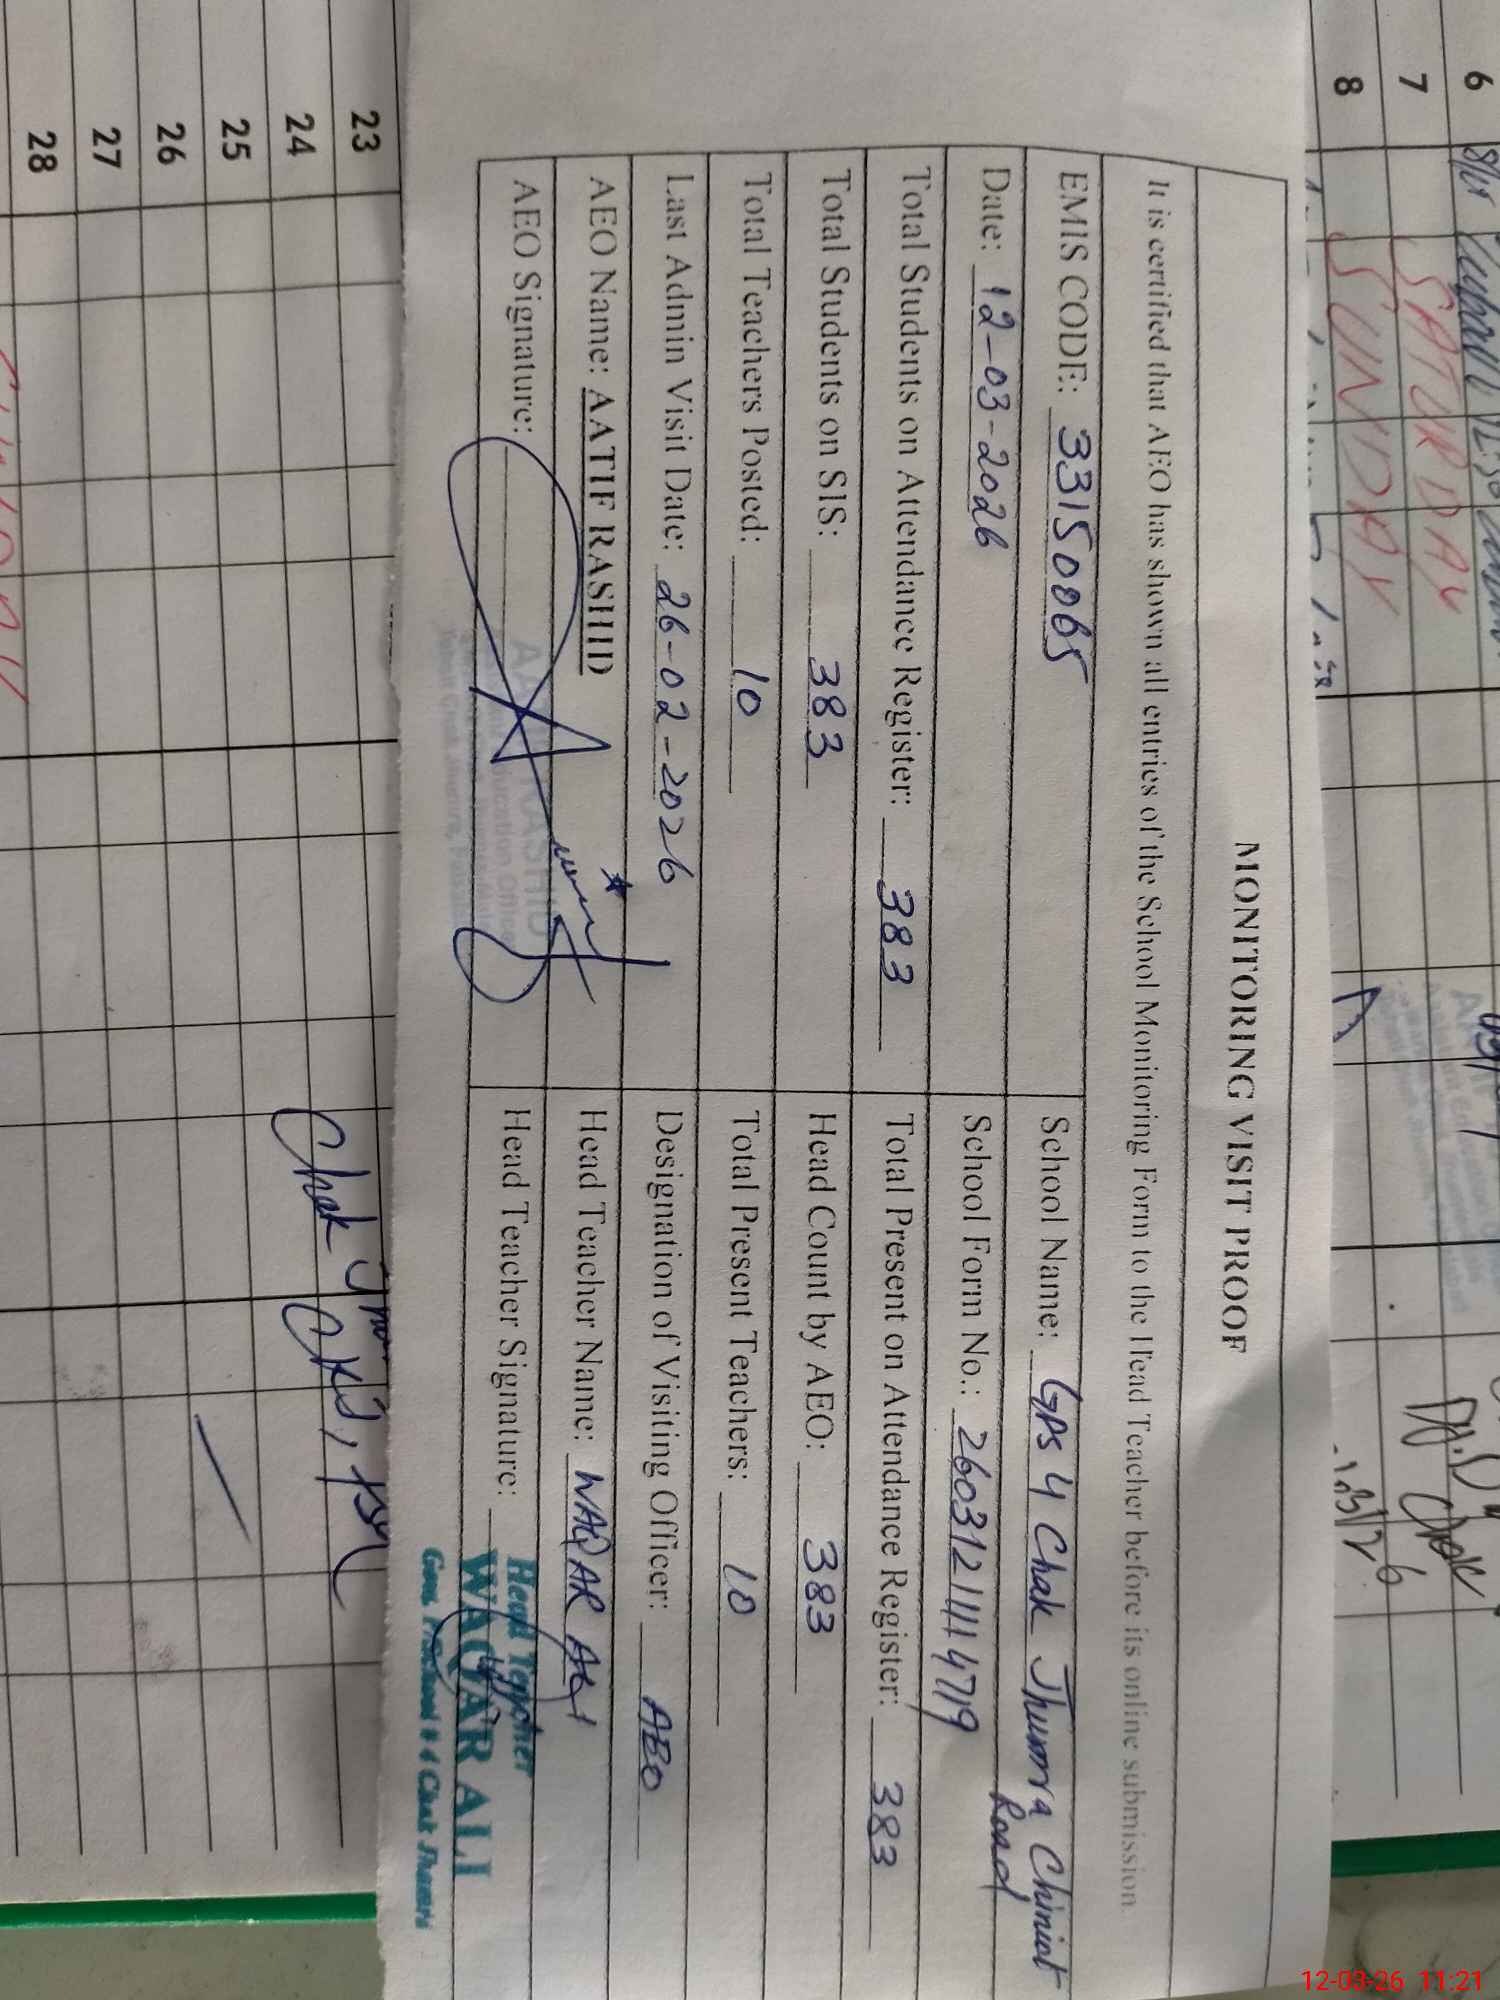 MONITORING VISIT PROOF
It is certified that AEO has shown all entries of the School Monitoring Form to the Head Teacher before its online submission
EMIS CODE: 33150065 School Name: GPS 4 Chak Jhumra Chiniot Road
Date: 12-03-2026 School Form No.:
Total Students on Attendance Register: 383 Total Present on Attendance Register: 383
Total Students on SIS: 383 Head Count by AEO: 383
Total Teachers Posted: 10 Total Present Teachers: 10
Last Admin Visit Date: 26-02-2026 Designation of Visiting Officer: AEO
AEO Name: AATIF RASHID Head Teacher Name: WAQAR ALI
AEO Signature: Head Teacher Signature:
Head Teacher
WAQAR ALI
6
7 SATURDAY
8 SUNDAY
23
24
25
26
27
28
Chak
12-03-26 11:21